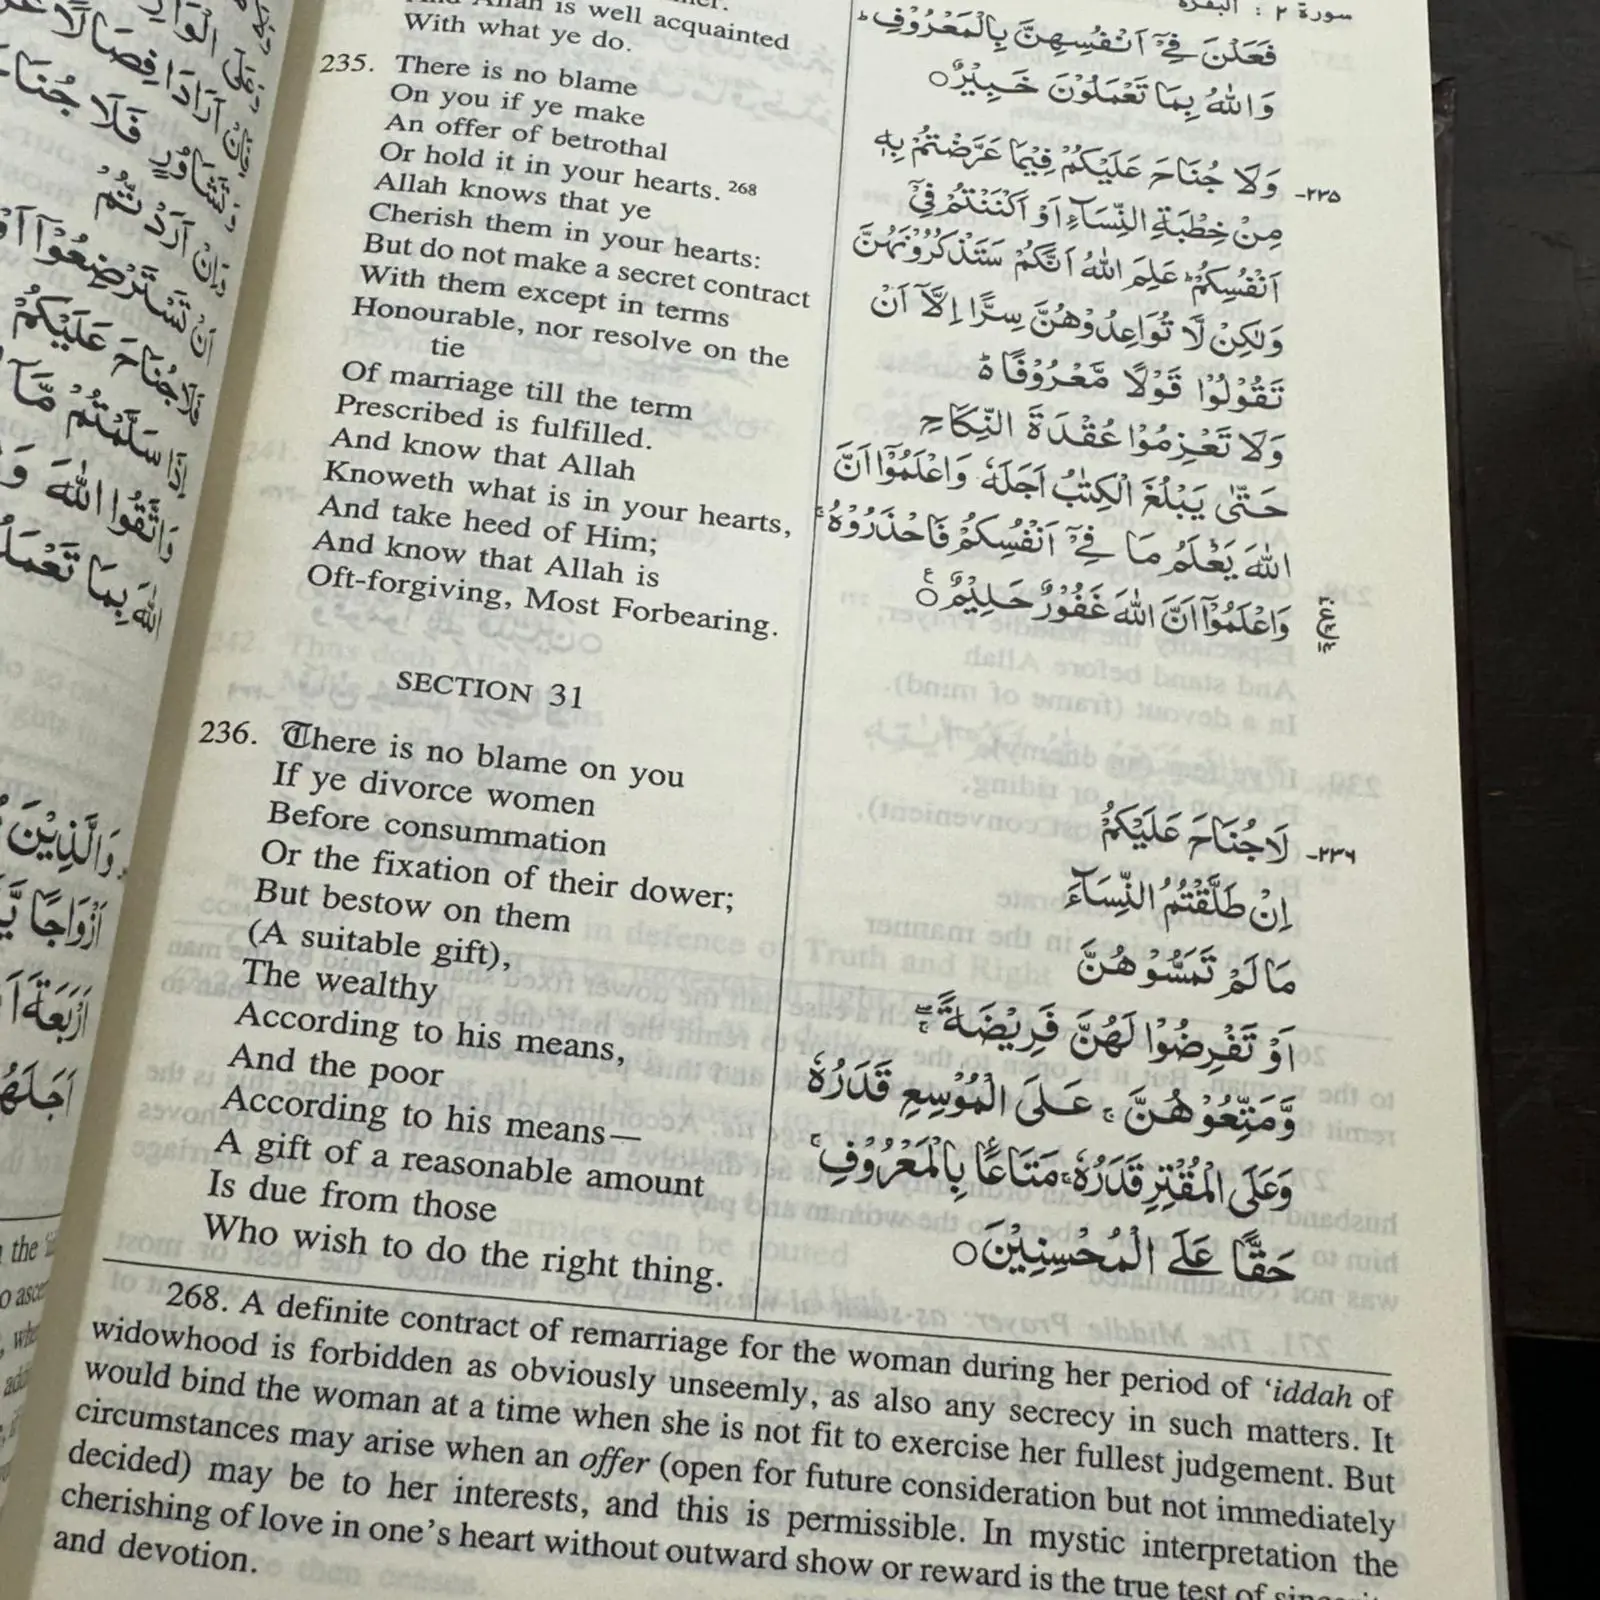 سورة ٢ : البقرة
Allah is well acquainted
With what ye do.
235. There is no blame
On you if ye make
An offer of betrothal
Or hold it in your hearts. 268
Allah knows that ye
Cherish them in your hearts:
But do not make a secret contract
With them except in terms
Honourable, nor resolve on the
tie
Of marriage till the term
Prescribed is fulfilled.
And know that Allah
Knoweth what is in your hearts,
And take heed of Him;
And know that Allah is
Oft-forgiving, Most Forbearing.
SECTION 31
236. There is no blame on you
If ye divorce women
Before consummation
Or the fixation of their dower;
But bestow on them
(A suitable gift),
The wealthy
According to his means,
And the poor
According to his means—
A gift of a reasonable amount
Is due from those
Who wish to do the right thing.
فَعَلْنَ فِيْٓ اَنْفُسِهِنَّ بِالْمَعْرُوْفِ ؕ
وَاللّٰهُ بِمَا تَعْمَلُوْنَ خَبِيْرٌ ○
٢٣٥- وَلَا جُنَاحَ عَلَيْكُمْ فِيْمَا عَرَّضْتُمْ بِهٖ
مِنْ خِطْبَةِ النِّسَآءِ اَوْ اَكْنَنْتُمْ فِيْٓ
اَنْفُسِكُمْ ؕ عَلِمَ اللّٰهُ اَنَّكُمْ سَتَذْكُرُوْنَهُنَّ
وَلٰكِنْ لَّا تُوَاعِدُوْهُنَّ سِرًّا اِلَّآ اَنْ
تَقُوْلُوْا قَوْلًا مَّعْرُوْفًا ؕ
وَلَا تَعْزِمُوْا عُقْدَةَ النِّكَاحِ
حَتّٰى يَبْلُغَ الْكِتٰبُ اَجَلَهٗ وَاعْلَمُوْٓا اَنَّ
اللّٰهَ يَعْلَمُ مَا فِيْٓ اَنْفُسِكُمْ فَاحْذَرُوْهُ ۚ
وَاعْلَمُوْٓا اَنَّ اللّٰهَ غَفُوْرٌ حَلِيْمٌ ○
٢٣٦- لَاجُنَاحَ عَلَيْكُمْ
اِنْ طَلَّقْتُمُ النِّسَآءَ
مَا لَمْ تَمَسُّوْهُنَّ
اَوْ تَفْرِضُوْا لَهُنَّ فَرِيْضَةً ۚ
وَّمَتِّعُوْهُنَّ ۚ عَلَى الْمُوْسِعِ قَدَرُهٗ
وَعَلَى الْمُقْتِرِ قَدَرُهٗ ۚ مَتَاعًا بِالْمَعْرُوْفِ ۚ
حَقًّا عَلَى الْمُحْسِنِيْنَ ○
268. A definite contract of remarriage for the woman during her period of ‘iddah of
widowhood is forbidden as obviously unseemly, as also any secrecy in such matters. It
would bind the woman at a time when she is not fit to exercise her fullest judgement. But
circumstances may arise when an offer (open for future consideration but not immediately
decided) may be to her interests, and this is permissible. In mystic interpretation the
cherishing of love in one’s heart without outward show or reward is the true test of
and devotion.